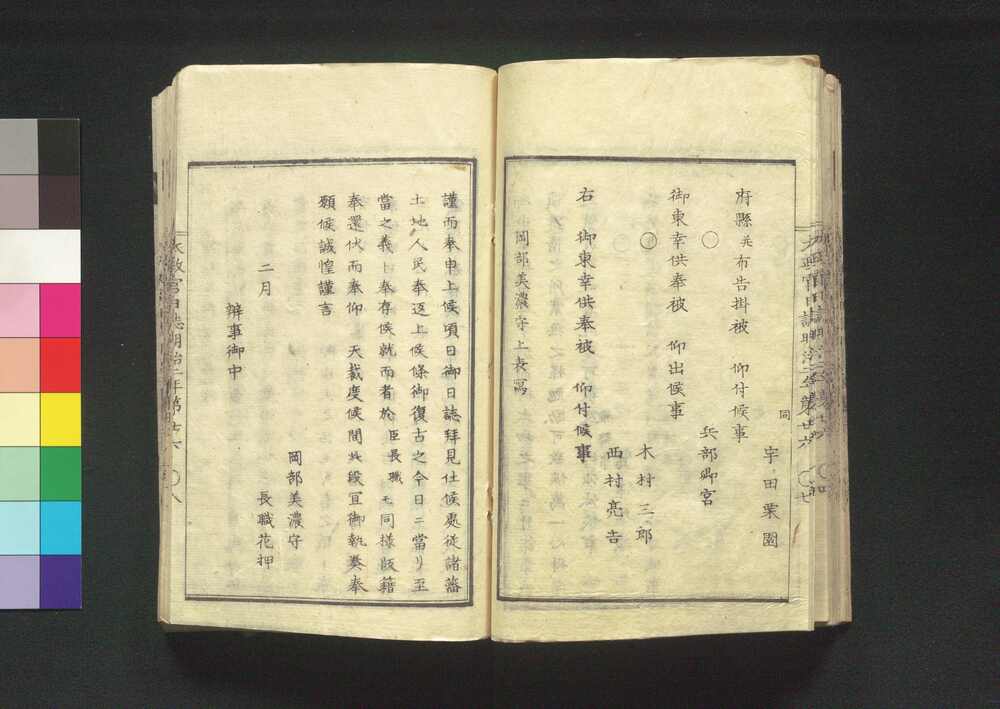 同 宇田栗園
府縣共布告掛被 仰付候事
〇 兵部卿宮
御東幸供奉被 仰出候事
〇 木村三郎
西村亮吉
右 御東幸供奉被 仰付候事
岡部美濃守上表寫
謹而奉申上候頃日御日誌拜見仕候處従諸藩
土地人民奉返上候條御復古之今日ニ當リ至
當之義ト奉存候就而者於 臣長職 モ同様版籍
奉還伏而奉仰 天裁度候間此段宜御執奏奉
願候誠惶謹言
岡部美濃守
二月 長職花押
辨事御中
太政官日誌明治二年第廿六 〇八